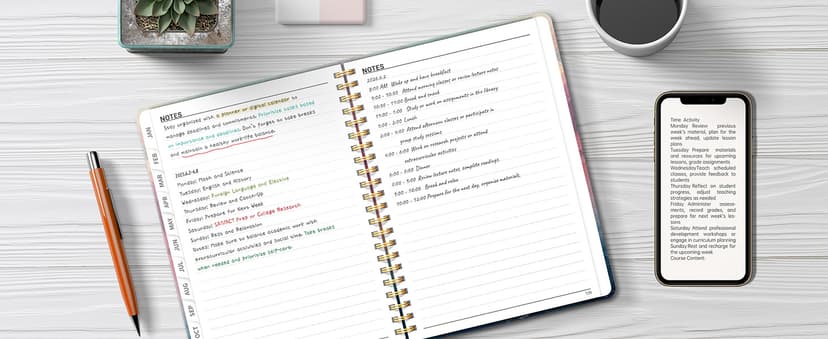 NOTES
Stay organized with a planner or digital calendar to
manage deadlines and commitments. Prioritize tasks based
on importance and deadlines. Don't forget to take breaks
and maintain a healthy work-life balance.
Monday: Math and Science
Tuesday: English and History
Wednesday: Foreign Language and Elective
Thursday: Review and Catch-Up
Friday: Prepare for Next Week
Saturday: SAT/ACT Prep or College Research
Sunday: Rest and Relaxation
Notes: Make sure to balance academic work with
extracurricular activities and social time. Take breaks
when needed and prioritize self-care.
JAN
FEB
MAR
APR
MAY
JUN
JUL
AUG
SEP
OCT
NOTES
8:00 AM Wake up and have breakfast
9:00 - 10:30 Attend morning classes or review lecture notes
10:30 - 11:00 Break and snack
11:00 - 1:00 Study or work on assignments in the library
1:00 - 2:00 Lunch
2:00 - 4:00 Attend afternoon classes or participate in
group study sessions
4:00 - 6:00 Work on research projects or attend
extracurricular activities
6:00 - 7:00 Dinner
7:00 - 9:00 Review lecture notes, complete readings
9:00 - 10:00 Break and relax
10:00 - 12:00 Prepare for the next day, organize materials
Time Activity
Monday Review previous
week's material, plan for the
week ahead, update lesson
plans
Tuesday Prepare materials
and resources for upcoming
lessons, grade assignments
Wednesday Teach scheduled
classes, provide feedback to
students
Thursday Reflect on student
progress, adjust teaching
strategies as needed
Friday Administer assess-
ments, record grades, and
prepare for next week's les-
sons
Saturday Attend professional
development workshops or
engage in curriculum planning
Sunday Rest and recharge for
the upcoming week
Course Content: